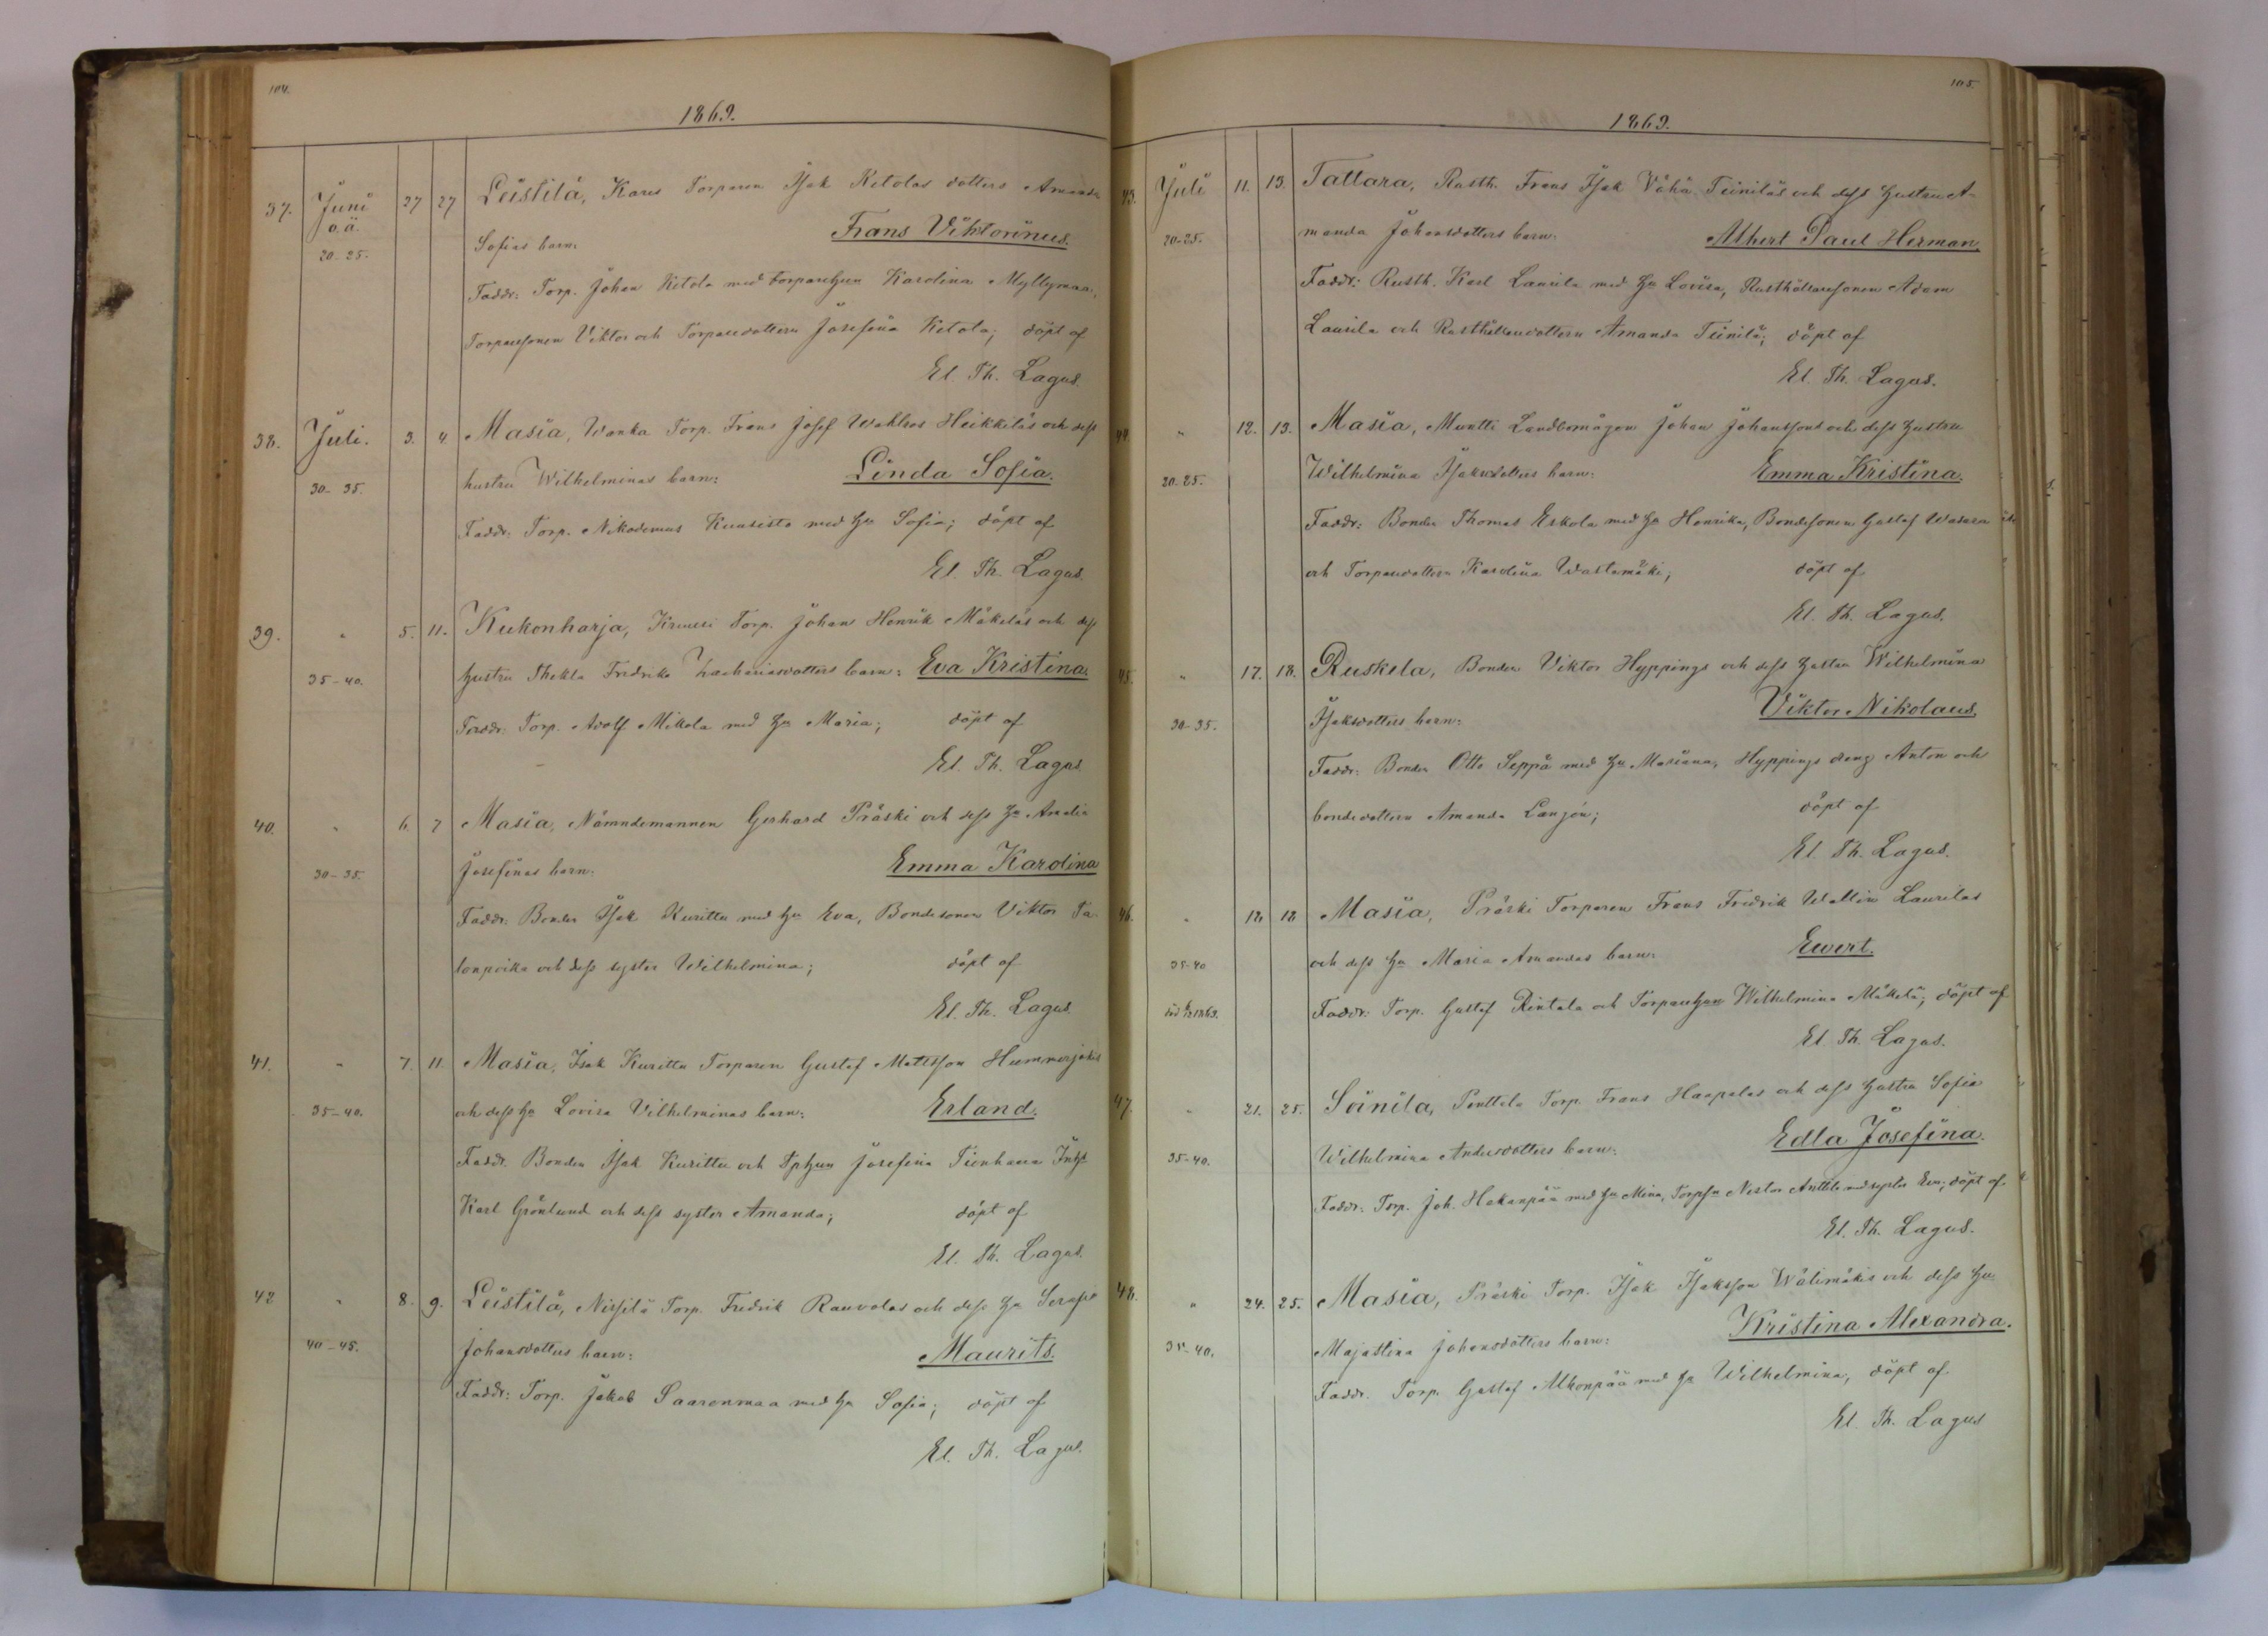 104.
1869.
37. Juni 27 27 Leistilä, Kares Torparen Isak Ketolas dotters Amanda
o.ä.
20-25. Sofias barn: Frans Viktorinus.
Faddr: Torp. Johan Ketola med torparehun Karolina Myllymaa,
Torparesonen Viktor och Torparedottern Josefina Ketola; döpt af
El. Th. Lagus.
38. Juli. 3. 4 Masia, Wanka Torp. Frans Josef Wahlros Heikkiläs och dess
30-35. hustru Wilhelminas barn: Linda Sofia.
Faddr: Torp. Nikodemus Kuusisto med hu Sofia; döpt af
El. Th. Lagus.
39. " 5. 11. Kukonharja, Torp. Johan Henrik Mäkeläs och dess
35-40. hustru Thekla Fredrika Zachariasdotters barn: Eva Kristina.
Faddr: Torp. Adolf Mikola med hu Maria; döpt af
El. Th. Lagus
40. " 6. 7 Masia, Nämndemannen Gerhard Präski och dess hu Amalia
30-35. Josefinas barn: Emma Karolina
Faddr: Bonden Isak Kurittu med hu Eva, Bondesonen Viktor Ta-
lonpoika och dess syster Wilhelmina; döpt af
El. Th. Lagus.
41. " 7. 11. Masia, Isak Kurittu Torparen Gustaf Mattsson Hummerjokis
35-40. och dess hu Lovisa Vilhelminas barn: Erland.
Faddr. Bonden Isak Kurittu och Josefina Tienhaara
Karl Grönlund och dess syster Amanda; döpt af
El. Th. Lagus.
42 " 8. 9. Leistilä, Nissilä Torp. Fredrik Rauvolas och dess hu Serafia
40-45. Johansdotters barn: Maurits.
Faddr: Torp. Jakob Saarenmaa med hu Sofia; döpt af
El. Th. Lagus.
105.
1869.
43. Juli 11. 13. Tattara, Rusth. Frans Isak Vähä Teiniläs och dess hustru A-
20-25. manda Johansdotters barn: Albert Paul Herman.
Faddr: Rusth. Karl Laurila med hu Lovisa, Rusthållaresonen Adam
Laurila och Rusthållaredottern Amanda Teinilä; döpt af
El. Th. Lagus.
44. " 12. 13. Masia, Muntti Landbomågen Johan Johanssons och dess hustru
20-25. Wilhelmina Isaksdotters barn: Emma Kristina.
Faddr: Bonden Thomas Eskola med hu Henrika, Bondesonen Gustaf Wasara
och Torparedottern Karolina Wastamäki; döpt af
El. Th. Lagus.
45. " 17. 18. Ruskela, Bonden Viktor Hyppings och dess hustru Wilhelmina
30-35. Isaksdotters barn: Viktor Nikolaus.
Faddr: Bonden Otto Seppä med hu Mariana, Hyppings dreng Anton och
bondedottern Amanda Lanjon; döpt af
El. Th. Lagus.
46. " 18 18 Masia, Präski Torparen Frans Fredrik Wallin Laurilas
35-40 och dess hu Maria Amandas barn: Ewert.
Faddr: Torp. Gustaf Rintala och Torparehun Wilhelmina Mäkelä; döpt af
El. Th. Lagus.
47. " 21. 25. Soinila, Penttala Torp. Frans Haapalas och dess hustru Sofia
35-40. Wilhelmina Andersdotters barn: Edla Josefina.
Faddr: Torp. Joh. Hakanpää med hu Mina, Nestor Anttila med syster Eva; döpt af
El. Th. Lagus.
48. " 24. 25. Masia, Präski Torp. Isak Isaksson Wälimäkis och dess hu
35-40. Majastina Johansdotters barn: Kristina Alexandra.
Faddr. Torp. Gustaf Alhonpää med hu Wilhelmina, döpt af
El. Th. Lagus